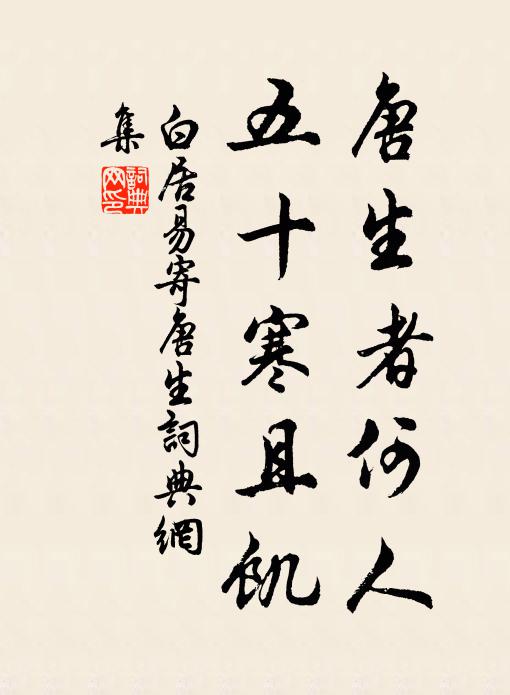 唐生者何人
五十寒且飢
白居易寄唐生詞典網
集
詞典
网印